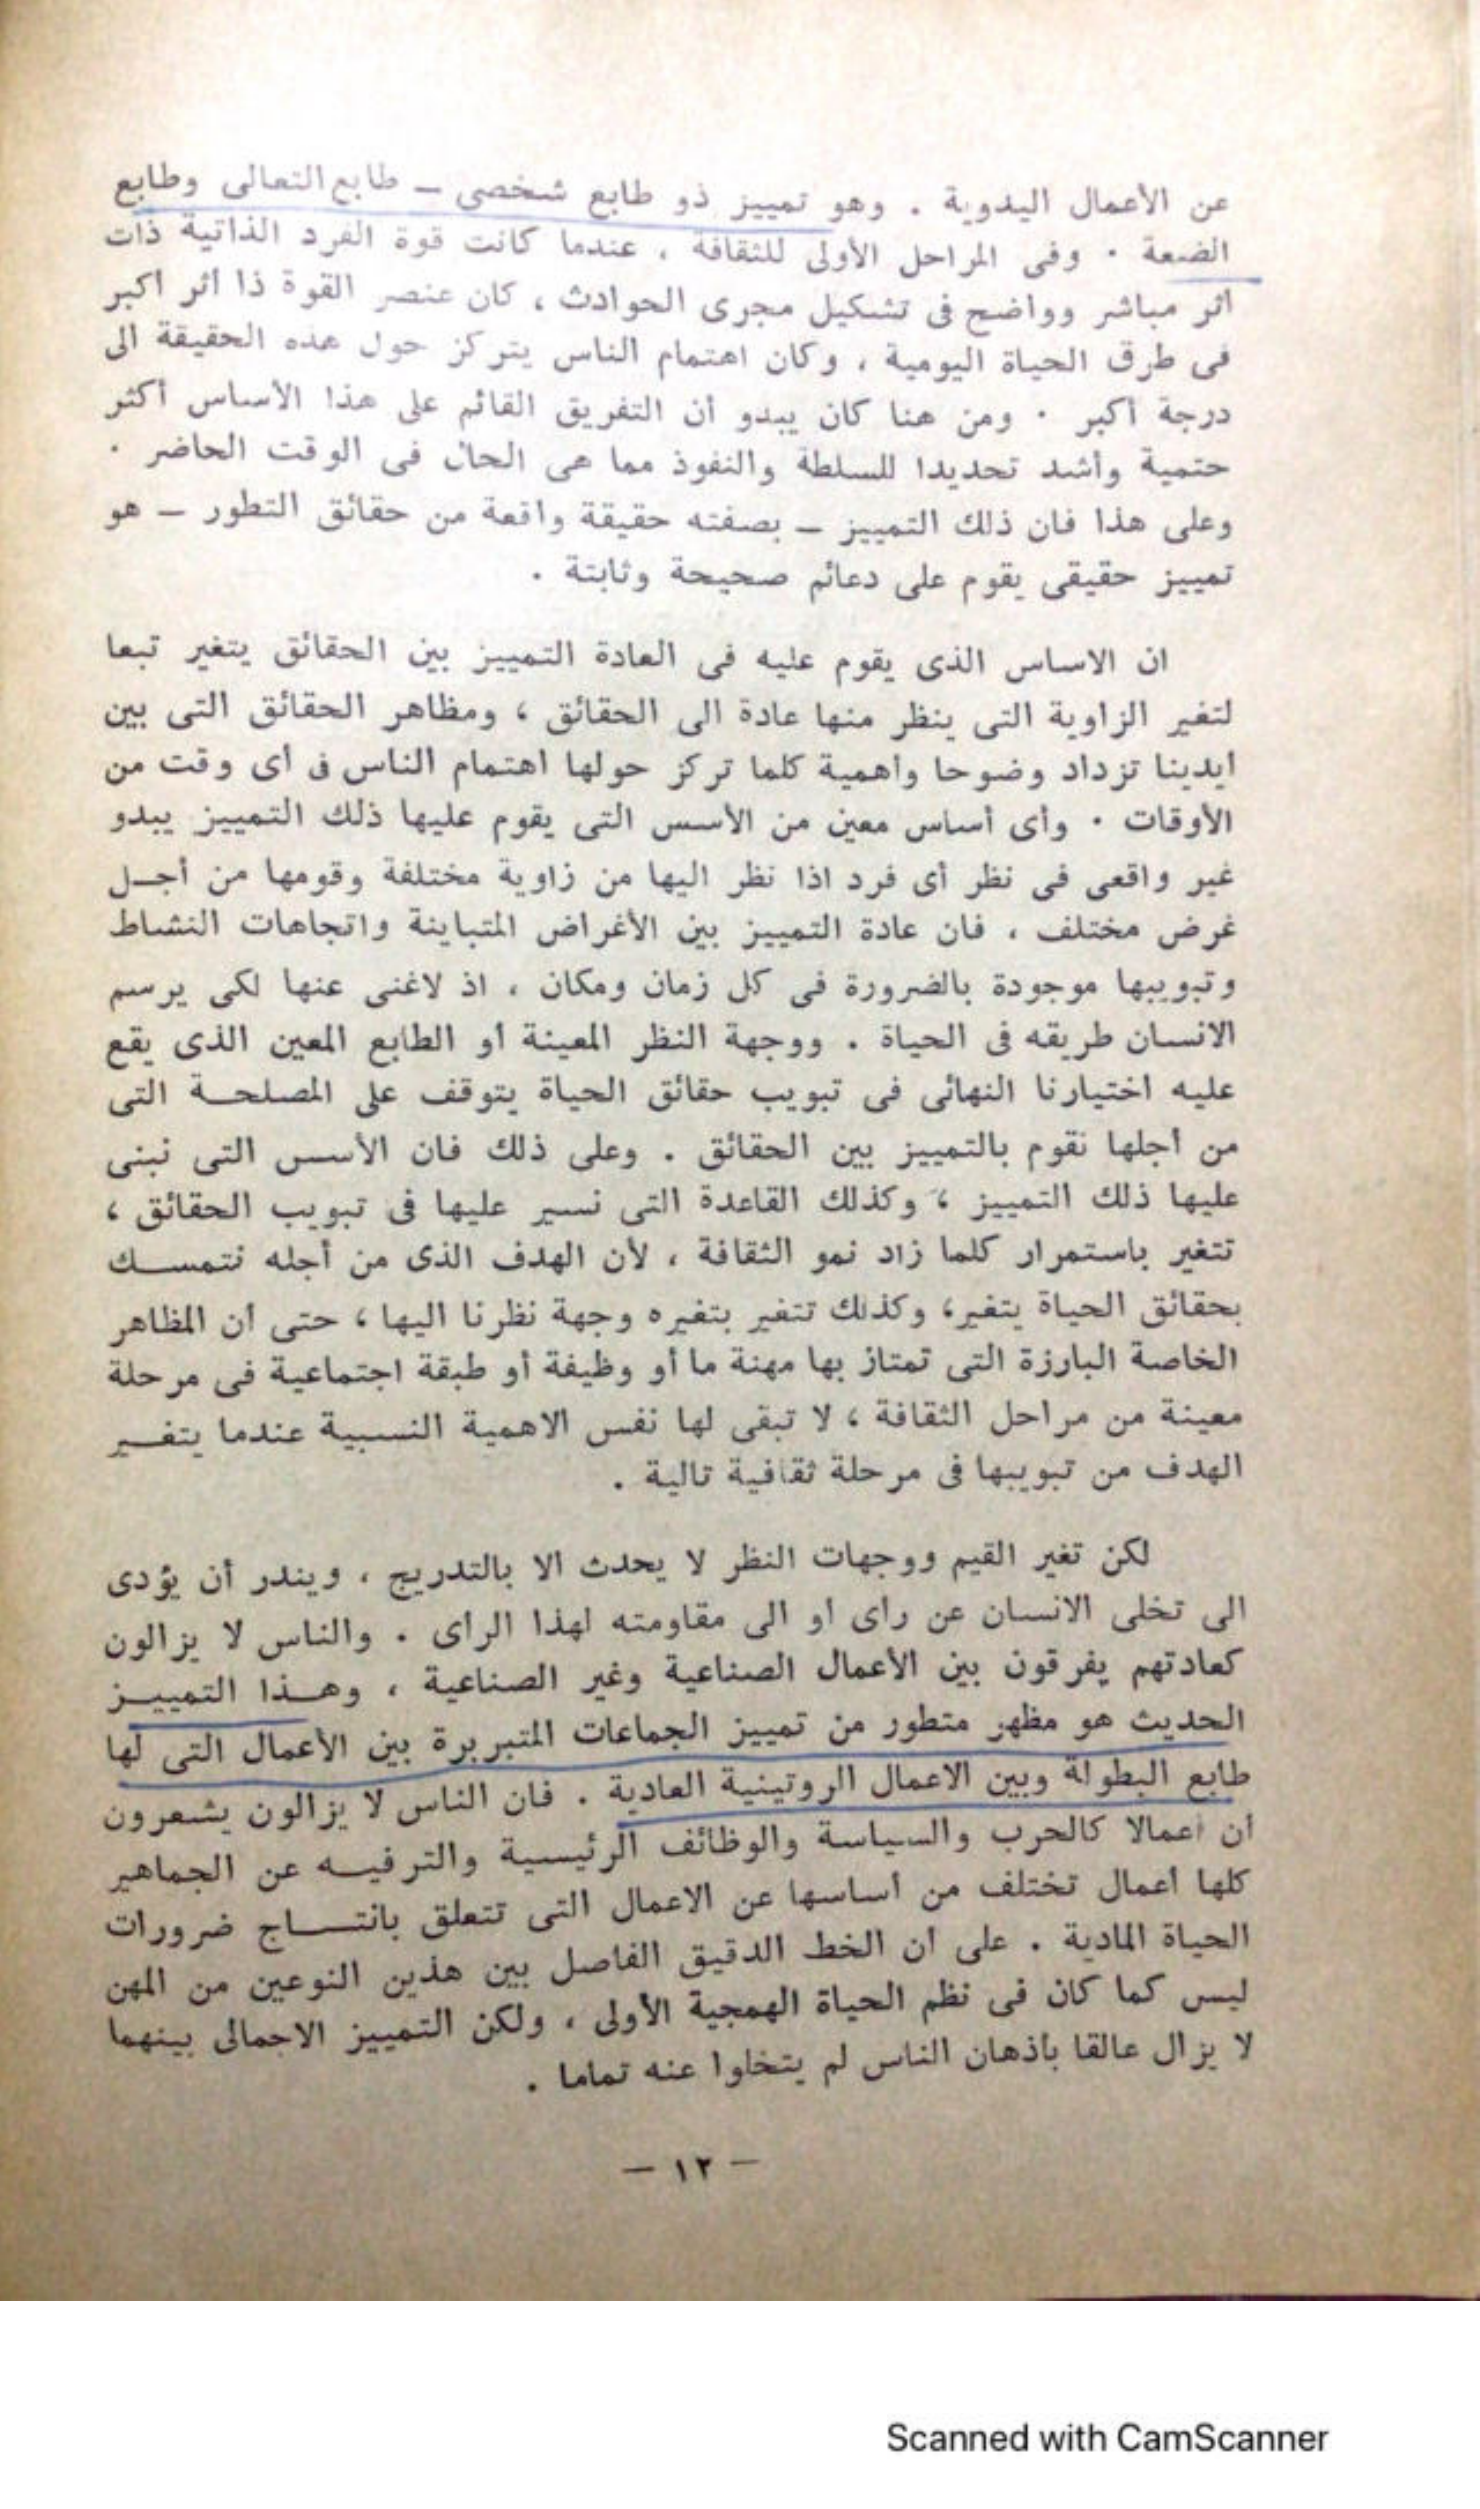 عن الأعمال اليدوية . وهو تمييز ذو طابع شخصى – طابع التعالى وطابع
الضعة . وفى المراحل الأولى للثقافة ، عندما كانت قوة الفرد الذاتية ذات
أثر مباشر وواضح فى تشكيل مجرى الحوادث ، كان عنصر القوة ذا أثر أكبر
فى طرق الحياة اليومية ، وكان اهتمام الناس يتركز حول هذه الحقيقة الى
درجة أكبر . ومن هنا كان يبدو أن التفريق القائم على هذا الأساس أكثر
حتمية وأشد تحديدا للسلطة والنفوذ مما هى الحال فى الوقت الحاضر .
وعلى هذا فان ذلك التمييز – بصفته حقيقة واقعة من حقائق التطور – هو
تمييز حقيقى يقوم على دعائم صحيحة وثابتة .
ان الاساس الذى يقوم عليه فى العادة التمييز بين الحقائق يتغير تبعا
لتغير الزاوية التى ينظر منها عادة الى الحقائق ، ومظاهر الحقائق التى بين
ايدينا تزداد وضوحا وأهمية كلما تركز حولها اهتمام الناس فى أى وقت من
الأوقات . وأى أساس معين من الأسس التى يقوم عليها ذلك التمييز يبدو
غير واقعى فى نظر أى فرد اذا نظر اليها من زاوية مختلفة وقومها من أجل
غرض مختلف ، فان عادة التمييز بين الأغراض المتباينة واتجاهات النشاط
وتبويبها موجودة بالضرورة فى كل زمان ومكان ، اذ لاغنى عنها لكى يرسم
الانسان طريقه فى الحياة . ووجهة النظر المعينة أو الطابع المعين الذى يقع
عليه اختيارنا النهائى فى تبويب حقائق الحياة يتوقف على المصلحة التى
من أجلها نقوم بالتمييز بين الحقائق . وعلى ذلك فان الأسس التى نبنى
عليها ذلك التمييز ، وكذلك القاعدة التى نسير عليها فى تبويب الحقائق ،
تتغير باستمرار كلما زاد نمو الثقافة ، لأن الهدف الذى من أجله نتمسك
بحقائق الحياة يتغير، وكذلك تتغير بتغيره وجهة نظرنا اليها ، حتى أن المظاهر
الخاصة البارزة التى تمتاز بها مهنة ما أو وظيفة أو طبقة اجتماعية فى مرحلة
معينة من مراحل الثقافة ، لا تبقى لها نفس الاهمية النسبية عندما يتغير
الهدف من تبويبها فى مرحلة ثقافية تالية .
لكن تغير القيم ووجهات النظر لا يحدث الا بالتدريج ، ويندر أن يؤدى
الى تخلى الانسان عن رأى أو الى مقاومته لهذا الرأى . والناس لا يزالون
كعادتهم يفرقون بين الأعمال الصناعية وغير الصناعية ، وهذا التمييز
الحديث هو مظهر متطور من تمييز الجماعات المتبربرة بين الأعمال التى لها
طابع البطولة وبين الاعمال الروتينية العادية . فان الناس لا يزالون يشعرون
أن أعمالا كالحرب والسياسة والوظائف الرئيسية والترفيه عن الجماهير
كلها أعمال تختلف من أساسها عن الاعمال التى تتعلق بانتاج ضرورات
الحياة المادية . على أن الخط الدقيق الفاصل بين هذين النوعين من المهن
ليس كما كان فى نظم الحياة الهمجية الأولى ، ولكن التمييز الاجمالى بينهما
لا يزال عالقا بأذهان الناس لم يتخلوا عنه تماما .
– ١٢ –
Scanned with CamScanner